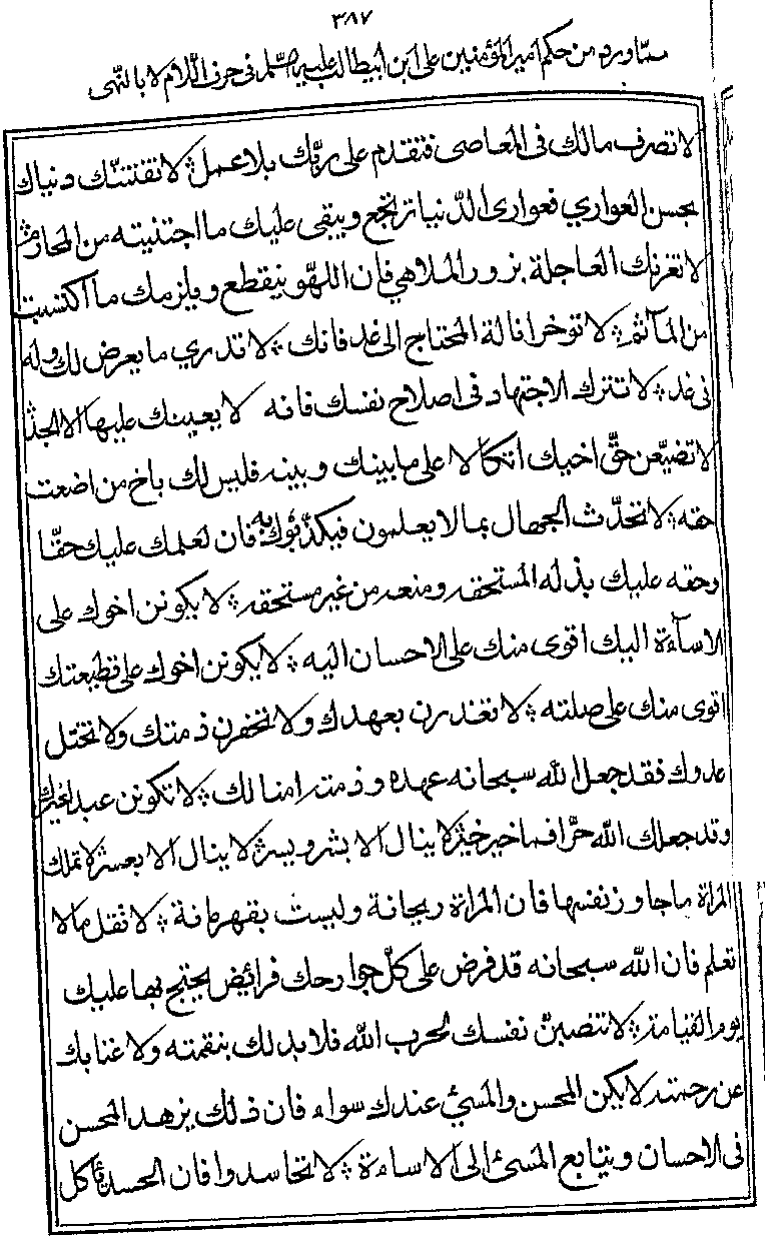 ٣٨٧
مما ورد من حكم امير المؤمنين على ابن ابيطالب عليه السلم فى حرف اللام لا بالنهى
لا تصرف مالك فى المعاصى فتقدم على ربّك بلا عمل لا تفتننّك دنياك
بحسن العواري فعوارى الدّنيا ترتجع ويبقى عليك ما اجتنيته من المحارم
لا تغرنك العاجلة بزور الملاهي فان اللهو ينقطع ويلزمك ما اكتسبت
من المآثم لا توخر انالة المحتاج الى غد فانك لا تدري ما يعرض لك وله
فى غد لا تترك الاجتهاد فى اصلاح نفسك فانه لا يعينك عليها الا الجدّ
لا تضيّعن حقّ اخيك اتكالا على ما بينك وبينه فليس لك باخ من اضعت
حقه لا تحدّث الجهال بما لا يعلمون فيكذّبوك به فان لعلمك عليك حقّا
وحقه عليك بذله لمستحقه ومنعه من غير مستحقه لا يكونن اخوك على
الاسآءة اليك اقوى منك على الاحسان اليه لا يكونن اخوك على قطيعتك
اقوى منك على صلته لا تغدرن بعهدك ولا تخفرن ذمتك ولا تختل
عدوك فقد جعل الله سبحانه عهده وذمته امنا لك لا تكونن عبد غيرك
وقد جعلك الله حرّا فما خير خير لا ينال الا بشر ويسر لا ينال الا بعسر لا تملك
المراة ما جاوز نفسها فان المراة ريحانة وليست بقهرمانة لا تقل ما لا
تعلم فان الله سبحانه قد فرض على كلّ جوارحك فرائض يحتج بها عليك
يوم القيامة لا تنصبنّ نفسك لحرب الله فلا يد لك بنقمته ولا غنا بك
عن رحمته لا يكن المحسن والمسئ عندك سواء فان ذلك يزهد المحسن
فى الاحسان ويتابع المسئ الى الاساءة لا تحاسدوا فان الحسد ياكل